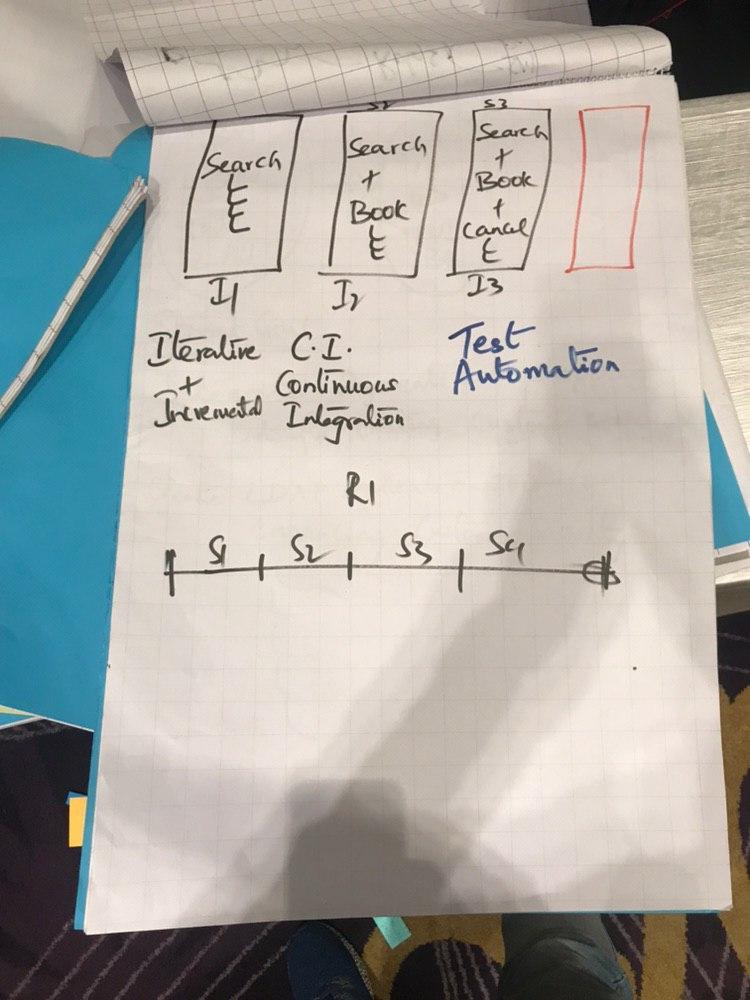 S2 S3
Search
t
t
t
Search
+
Book
t
t
Search
+
Book
+
Cancel
t
I1 I2 I3
Iterative
+
Incremental
C.I.
Continuous
Integration
Test
Automation
R1
S1 S2 S3 S4